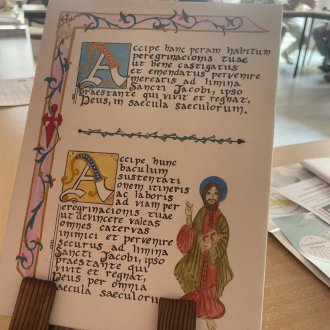 Accipe hanc peram habitum
peregrinacionis tuae
ut bene castigatus
et emendatus pervenire
merearis ad limina
Sancti Jacobi, ipso
praestante qui vivit et regnat,
Deus, in saecula saeculorum.
Accipe hunc
baculum
sustentati
onem itineris
ac laboris
ad viam per
eregrinacionis tuae
ut devincere valeas
omnes catervas
inimici et pervenire
securus ad limina
Sancti Jacobi, ipso
praestante qui
vivit et regnat,
Deus per omnia
saecula saeculorum